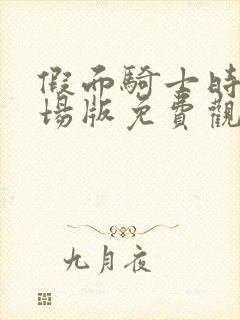 假面騎士時
場版免費觀
九月夜